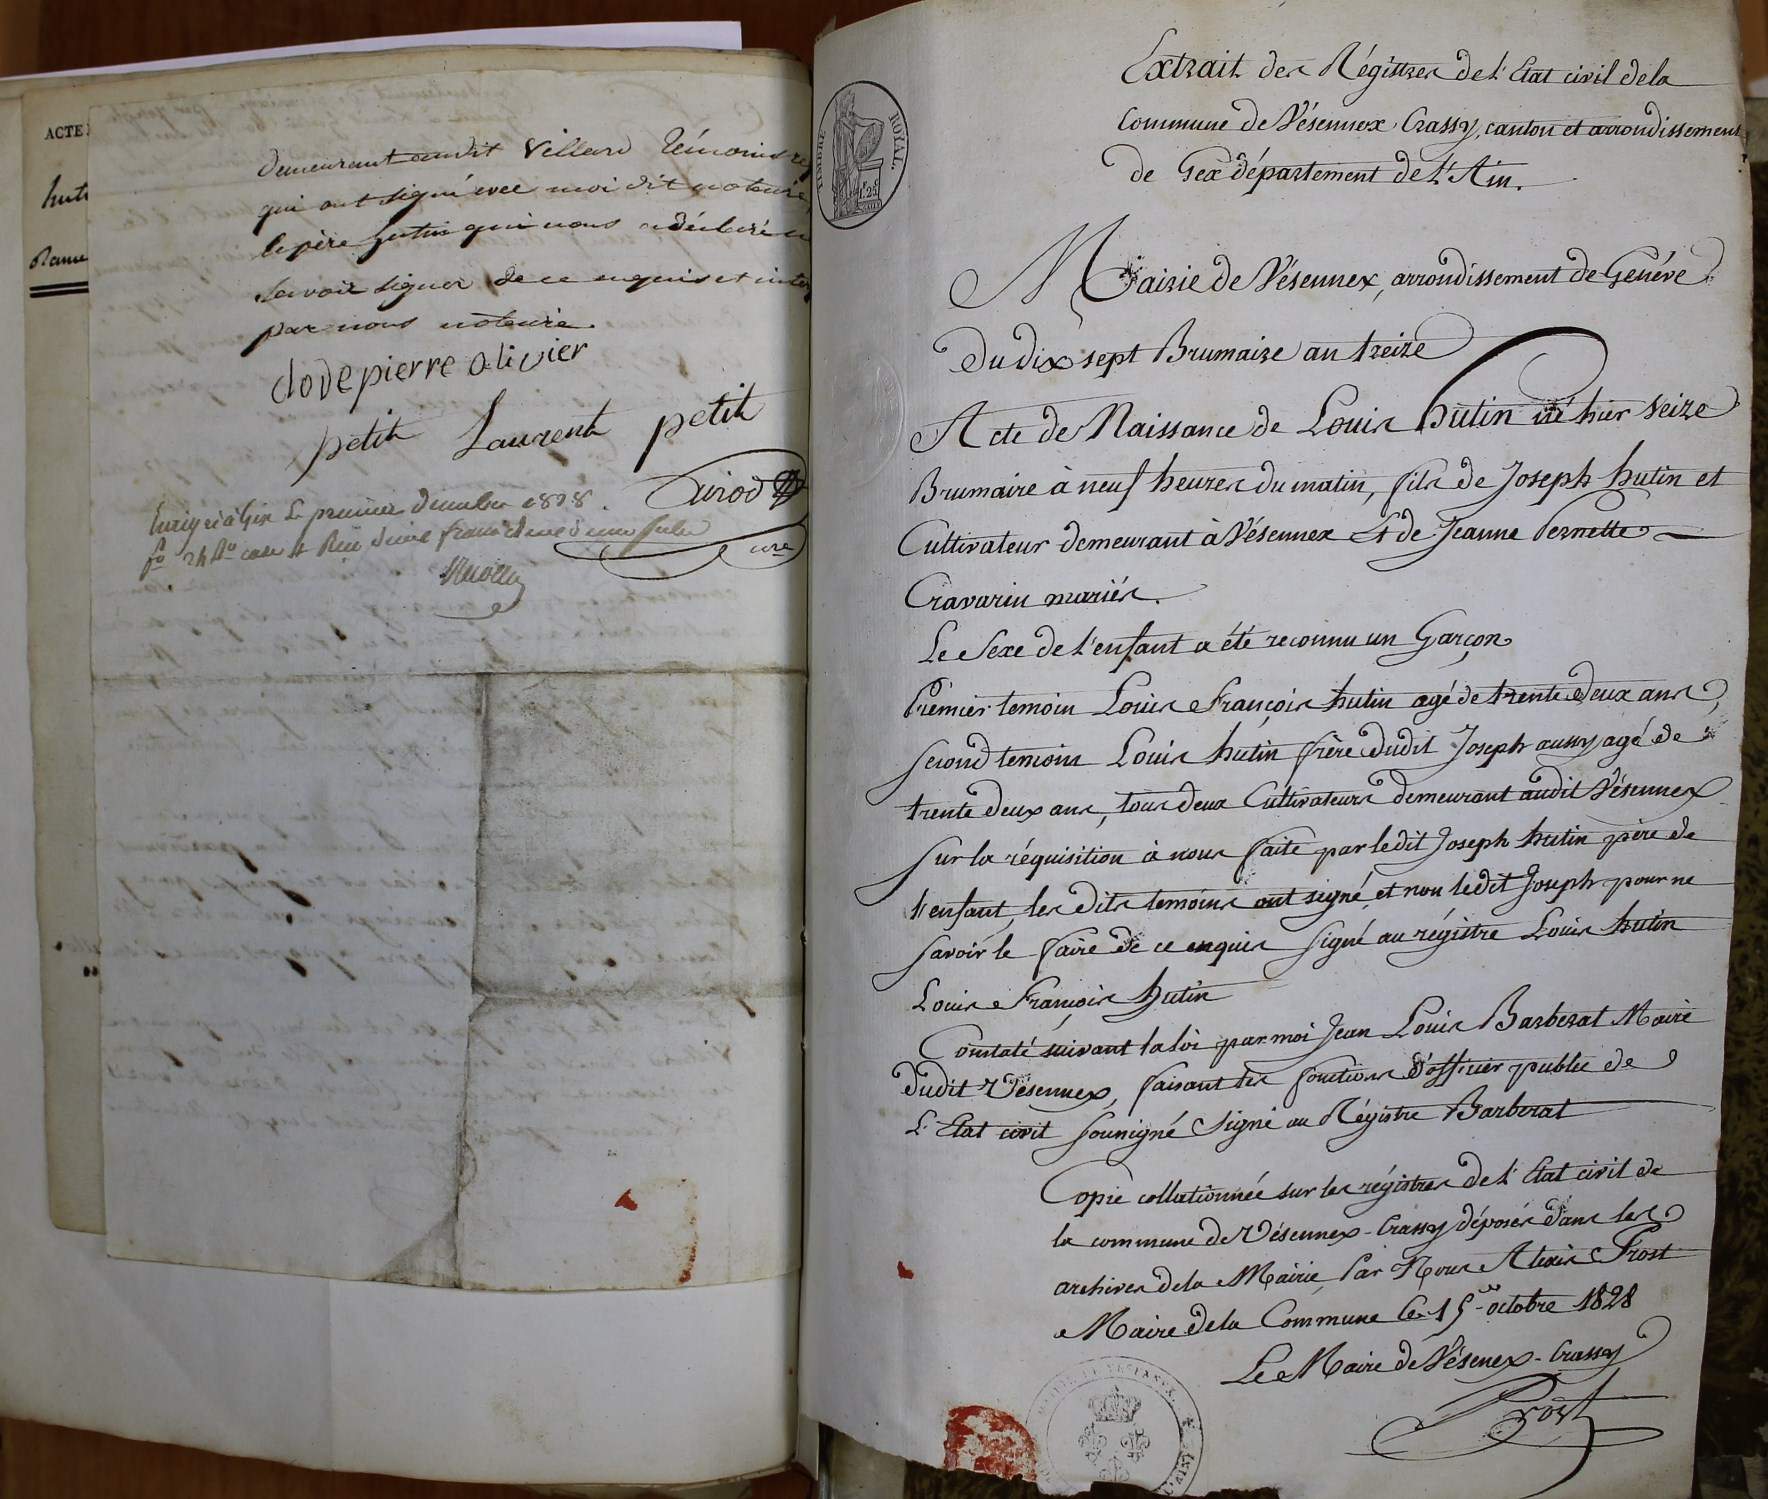 ACTE
hut
demeurant audit Villard témoins re
qui ont signé avec moi dit notaire
le père hutin qui nous a déclaré ne
savoir signer de ce enquis et inter
par nous notaire.
clodepierre olivier
petit Laurent petit
Girod
nre
Enrigré à Gex Le premier decembre 1828.
fo 24 Ro case 4 Reçu
Extrait des Régistres de l'Etat civil de la
Commune de Vésennex Crassy, canton et arrondissement
de Gex département de l'Ain.
TIMBRE ROYAL
1f.25c
Mairie de Vésennex, arrondissement de Genéve
Du dix sept Brumaire an treize
Acte de Naissance de Louis hutin né hier Seize
Brumaire à neuf heures du matin, fils de Joseph hutin et
Cultivateur demeurant à Vésennex et de Jeanne Pernette
Cravarin mariés.
Le Sexe de l'enfant a été reconnu un Garçon
Prémier temoin Louis François hutin agé de trente Deux ans,
second temoin Louis hutin frère dudit Joseph aussy agé de
trente deux ans, tous deux Cultivateurs demeurant audit Vésennex
sur la réquisition à nous faite par ledit Joseph hutin père de
l'enfant, les dits temoins ont signé, et non ledit Joseph pour ne
savoir le faire de ce enquis signé au régistre Louis hutin
Louis François hutin
Constaté suivant la loi par moi Jean Louis Barberat Maire
dudit Vésennex, faisant les fonctions d'officier public de
L'Etat civil soussigné Signé au Régistre Barberat
Copie collationnée sur les régistres de l'Etat civil de
la commune de Vésennex-Crassy déposés dans les
archives de la Mairie, Par Nous Alexis Prost
Maire de la Commune le 15 octobre 1828
Le Maire de Vésenex-Crassy
Prost